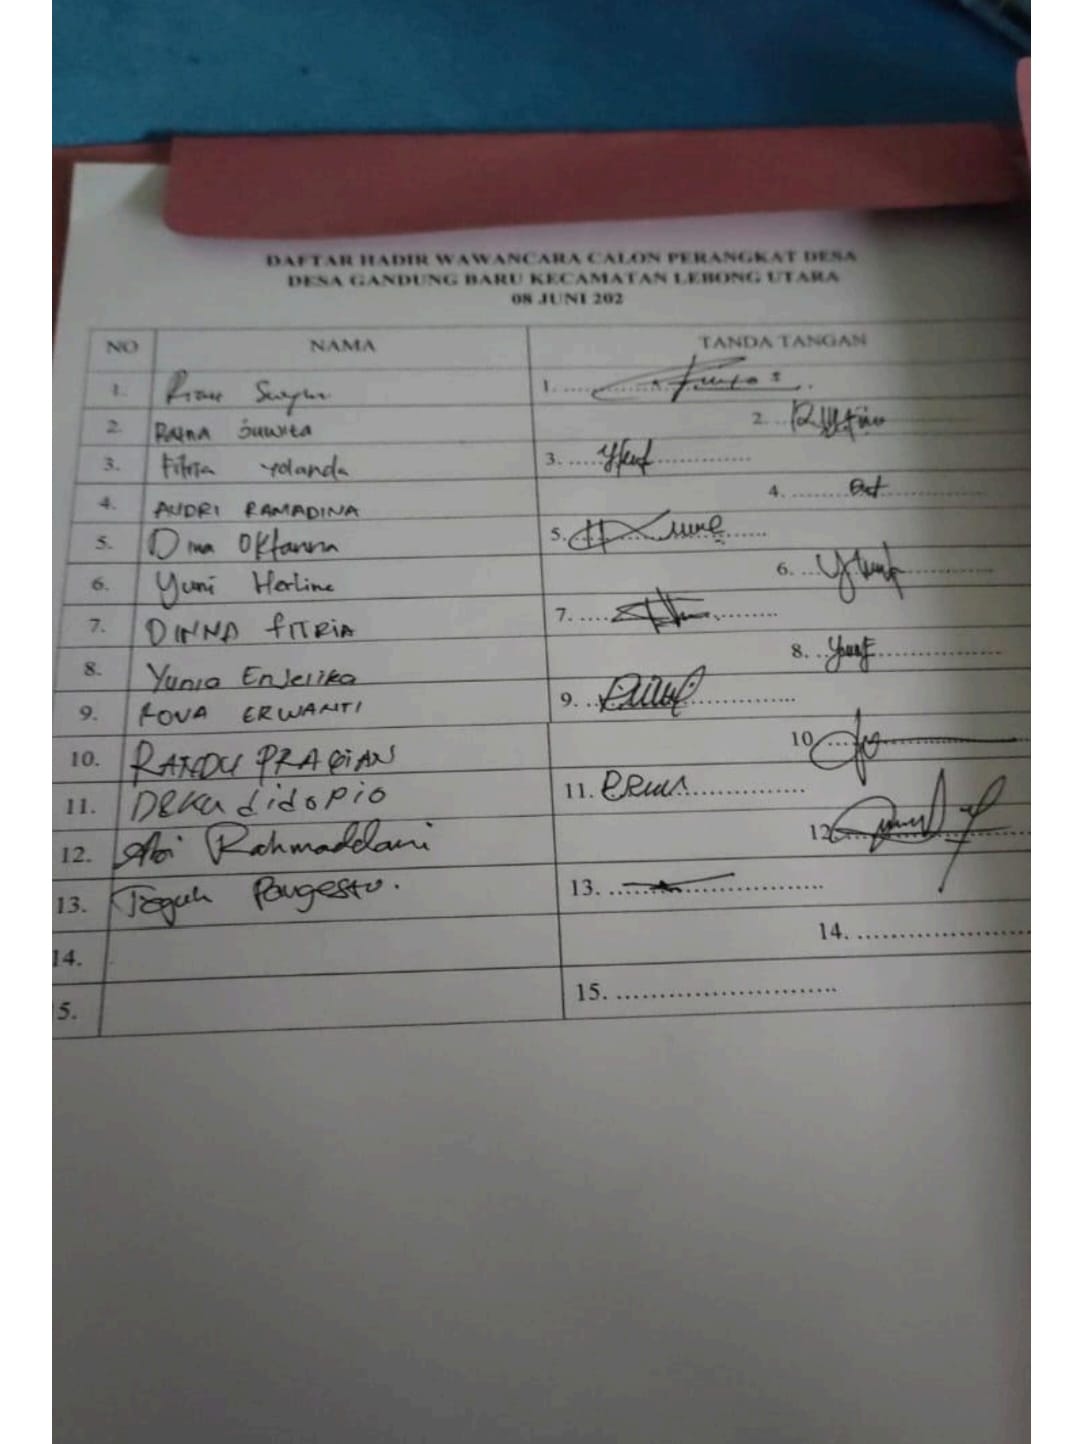 DAFTAR HADIR WAWANCARA CALON PERANGKAT DESA
DESA GANDUNG BARU KECAMATAN LEBONG UTARA
08 JUNI 202
NO NAMA TANDA TANGAN
1. 1.
2. Ratna Juwita 2.
3. Fitria Yolanda 3.
4. AUDRI RAMADINA 4.
5. 5.
6. Yuni Herline 6.
7. DINNA FITRIA 7.
8. Yunia Enjelika 8.
9. ROVA ERWANTI 9.
10. 10
11. Deka didopio 11.
12. Abi Rahmaddani 12
13. Teguh Pangestu. 13.
14. 14.
5. 15.